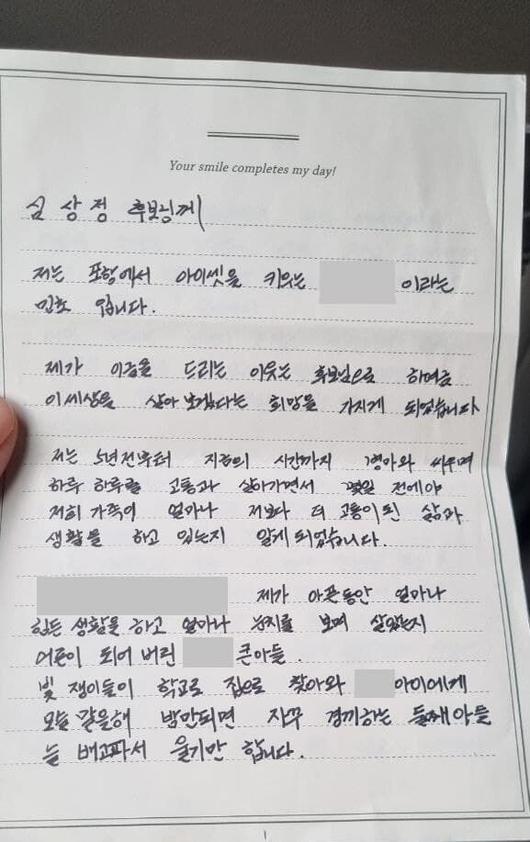 Your smile completes my day!
심상정 후보님께
저는 포항에서 아이셋을 키우는 이라는
입니다.
제가 이글을 드리는 이유는 후보님으로 하여금
이세상을 살아 보겠다는 희망을 가지게 되었습니다
저는 5년전부터 지금의 시간까지 병마와 싸우며
하루 하루를 고통과 살아가면서 몇일 전에야
저희 가족이 얼마나 저보다 더 고통이 된 삶과
생활을 하고 있는지 알게 되었습니다.
제가 아픈동안 얼마나
힘든 생활을 하고 얼마나 눈치를 보며 살았는지
어른이 되어 버린 큰아들.
빛 쟁이들이 학교로 집으로 찾아와 아이에게
모슬 말을해 밤만되면 자꾸 경끼하는 둘째아들
늘 배고파서 울기만 합니다.
1